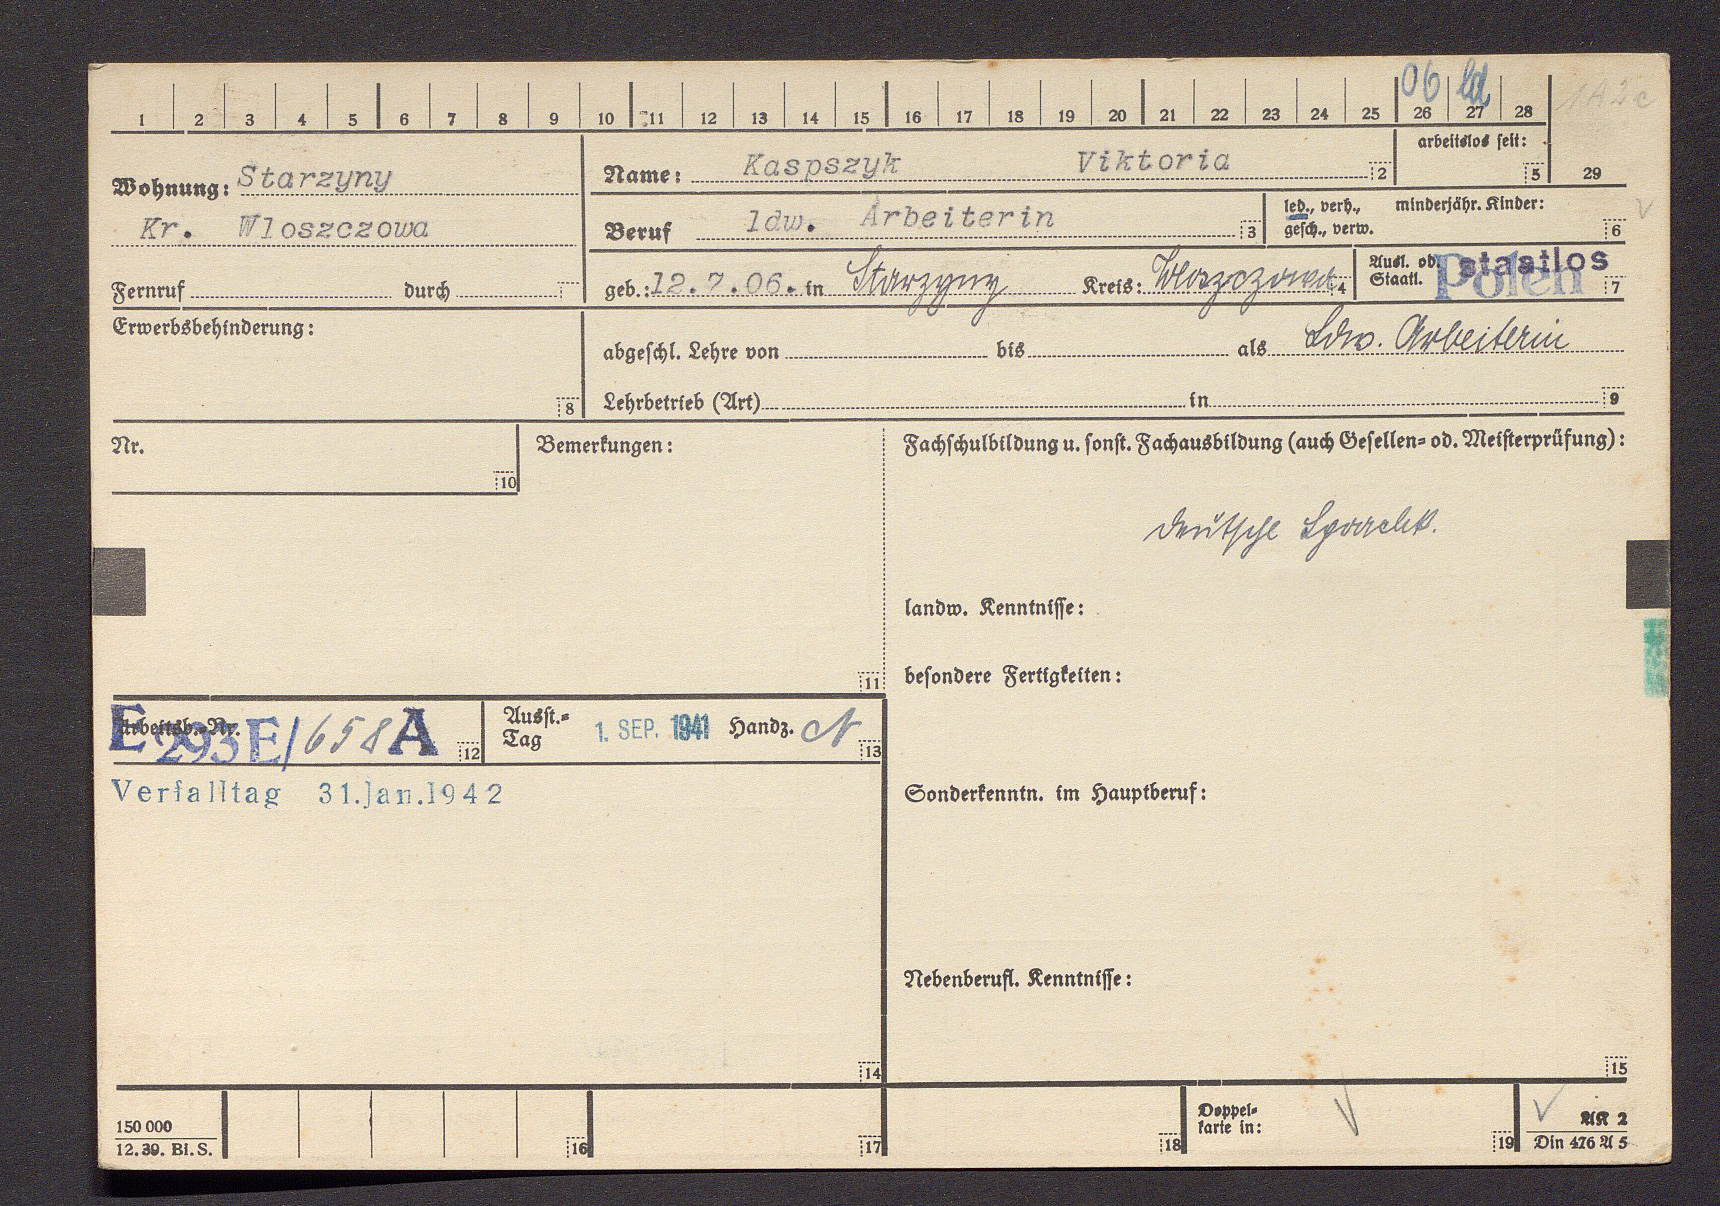 06 ld
1A2c
1 2 3 4 5 6 7 8 9 10 11 12 13 14 15 16 17 18 19 20 21 22 23 24 25 26 27 28
29
Wohnung: Starzyny
Kr. Wloszczowa
Fernruf durch
Name: Kaspszyk Viktoria 2
arbeitslos seit: 5
Beruf ldw. Arbeiterin 3
led., verh., minderjähr. Kinder:
gesch., verw. 6
geb.: 12.7.06. in Starzyny Kreis: Wloszczowa 4
Ausl. od. staatlos
Staatl. Polen 7
Erwerbsbehinderung: 8
abgeschl. Lehre von bis als Ldw. Arbeiterin
Lehrbetrieb (Art) in 9
Nr. 10
Bemerkungen: 11
Fachschulbildung u. sonst. Fachausbildung (auch Gesellen= od. Meisterprüfung):
deutsche Sprachk.
landw. Kenntnisse:
besondere Fertigkeiten:
Arbeitsb.=Nr. E 293E/658 A 12
Ausst.=
Tag 1. SEP. 1941 Handz. N 13
Verfalltag 31.Jan.1942
14
Sonderkenntn. im Hauptberuf:
Nebenberufl. Kenntnisse:
15
150 000
12. 39. Bl. S.
16 17 18
Doppel=
karte in: 19
AK 2
Din 476 A 5